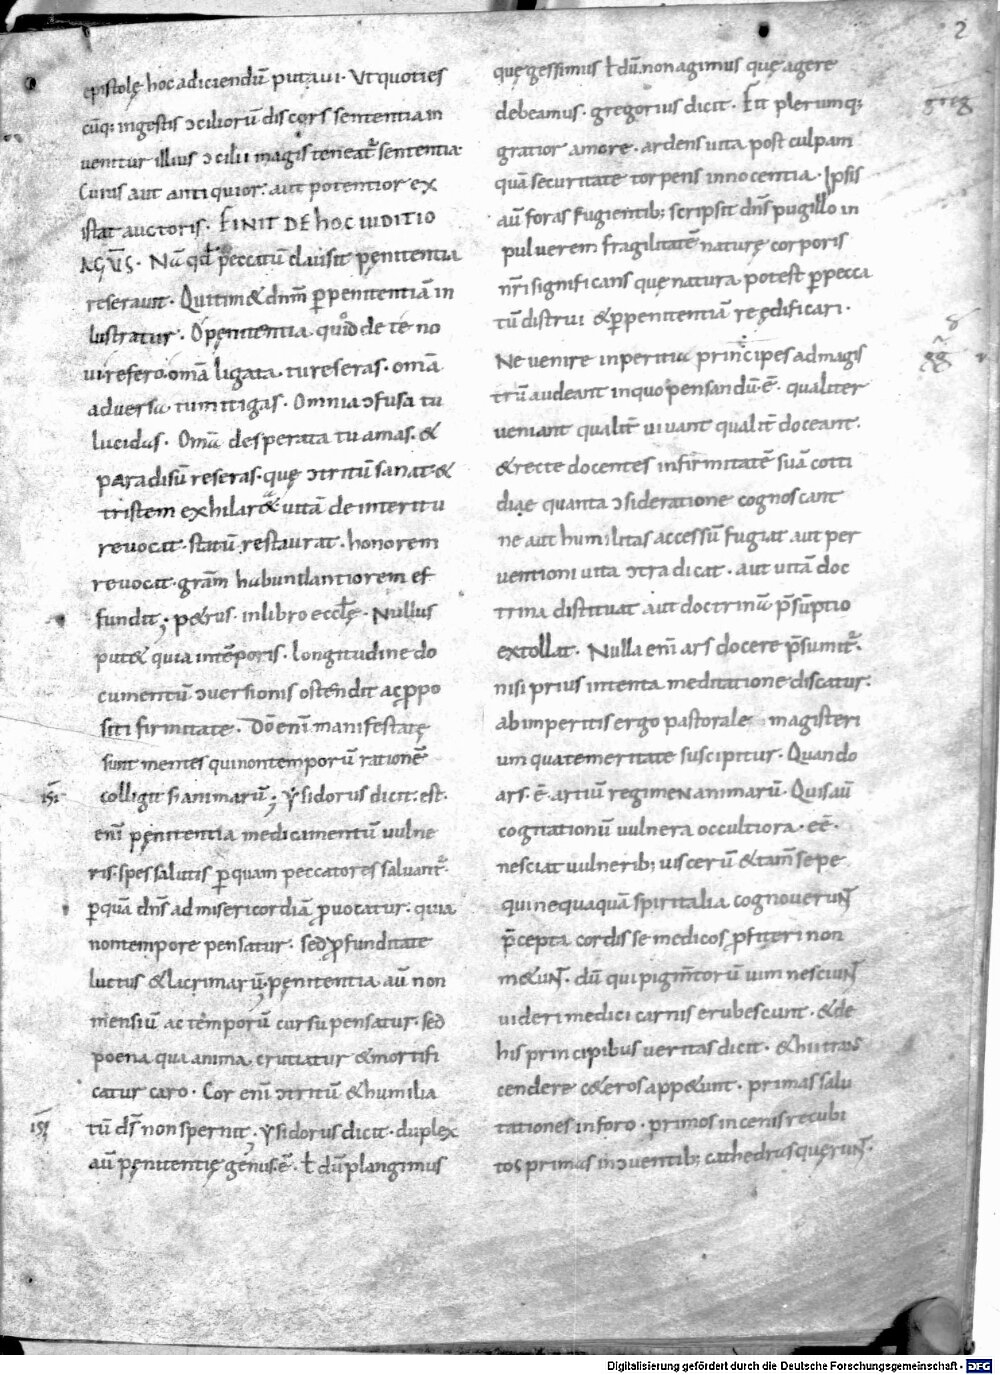 2
epistolę hoc adiciendū putaui· Vt quoties
cūq; ingestis ɔciliorū discors sententia in
uenitur illius ɔcilii magis teneat᷑ sententia·
Cuius aut antiquior· aut potentior ex
istat auctoris· FINIT DE hoc IUDITIO
Nā qđ peccatū clausit pęnitentia
reserauit· Qui tim& dnm̄ p̱ penitentiā in
lustratur· O pęnitentia quid de te no
ui refero· om̄a ligata tu reseras· om̄a
aduersa tu mitigas· Omnia ɔfusa tu
lucidas· Om̄a desperata tu amas· &
paradisū reseras· quę ɔtritū sanat &
tristem exhilarat & uitā de interitu
reuocat· statū restaurat· honorem
reuocat· grām habundantiorem ef
fundit; p&rus· in libro eccłę· Nullus
put& quia in tēporis· longitudine do
cumentū ɔuersionis ostendit ac p̱po
siti firmitate· Dō enī manifestatę
sunt mentes qui non temporū rationē
colligit s; animarū; ysidorus dicit· est·
enī pęnitentia medicamentū uulne
ris· spes salutis p̱ quam peccatores saluant᷑·
p̱ quā dn̄s ad misericordiā ꝓuocatur· quia
non tempore pensatur· sed ꝓfunditate
luctus & lacrimarū; pęnitentia aū non
mensiū ac tēporū cursu pensatur· sed
poena qua anima cruciatur & mortifi
catur caro· Cor enī ɔtritū & humilia
tū ds̄ non spernit; ysidorus dicit· duplex
aū pęnitentię genus· ē· ł dū plangimus
isi
isi
quę gessimus ł dū· non agimus quę agere
debeamus· gregorius dicit· Fit plerumq;
gratior amore· ardens uita post culpam
quā securitate torpens innocentia· Ipsis
aū foras fugientib; scripsit dn̄s pugillo in
puluerem fragilitatē naturę corporis
nr̄i significans quę natura potest p̱ pecca
tū distrui & p̱ penitentiā reędificari·
Ne uenire inperitia principes ad magis
trū audeant in quo pensandū· ē· qualiter
ueniant qualit̄ uiuant qualit̄ doceant·
& recte docentes infirmitatē suā cotti
diae quanta ɔsideratione cognoscant
ne aut humilitas accessū fugiat aut per
uentioni uita ɔtradicat· aut uitā doc
trina distituat aut doctrinā p̄sūptio
extollat· Nulla enī ars docere p̄sumit᷑·
nisi prius intenta meditatione discatur·
ab imperitis ergo pastorale magisteri
um qua temeritate suscipitur· Quando
ars· ē· artiū regimen animarū· Quis aū
cogitationū uulnera occultiora· eē·
nesciat uulnerib; uiscerū & tam̄ sępe
qui nequaquā spiritalia cognouerunt
p̄cepta cordis se medicos ꝓfiteri non
m&unt· dū qui pigm̄torū uim nesciunt
uideri medici carnis erubescunt· & de
his principibus ueritas dicit· & hii tran
cendere c&eros app&unt· primas salu
tationes in foro· primos in cenis recubi
tos primas in ɔuentib; cathedras quęrunt·
greg
gg